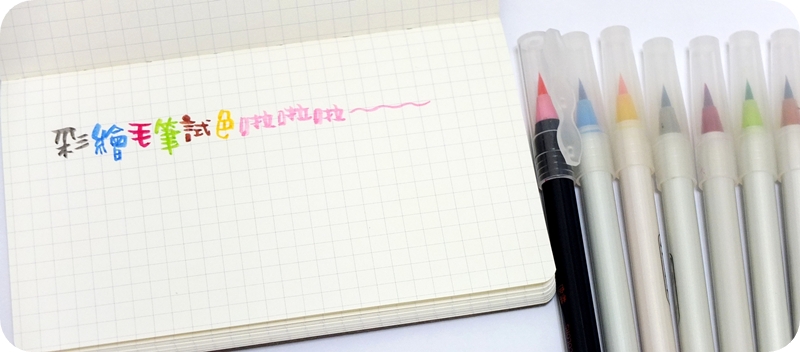 彩繪毛筆試色啦啦啦～